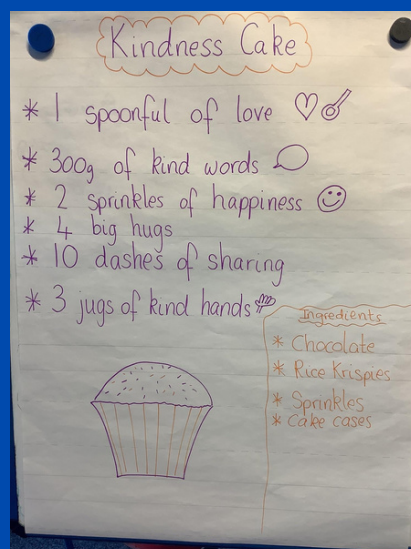 Kindness Cake
* 1 spoonful of love
* 300g of kind words
* 2 sprinkles of happiness
* 4 big hugs
* 10 dashes of sharing
* 3 jugs of kind hands
Ingredients
* Chocolate
* Rice Krispies
* Sprinkles
* Cake cases